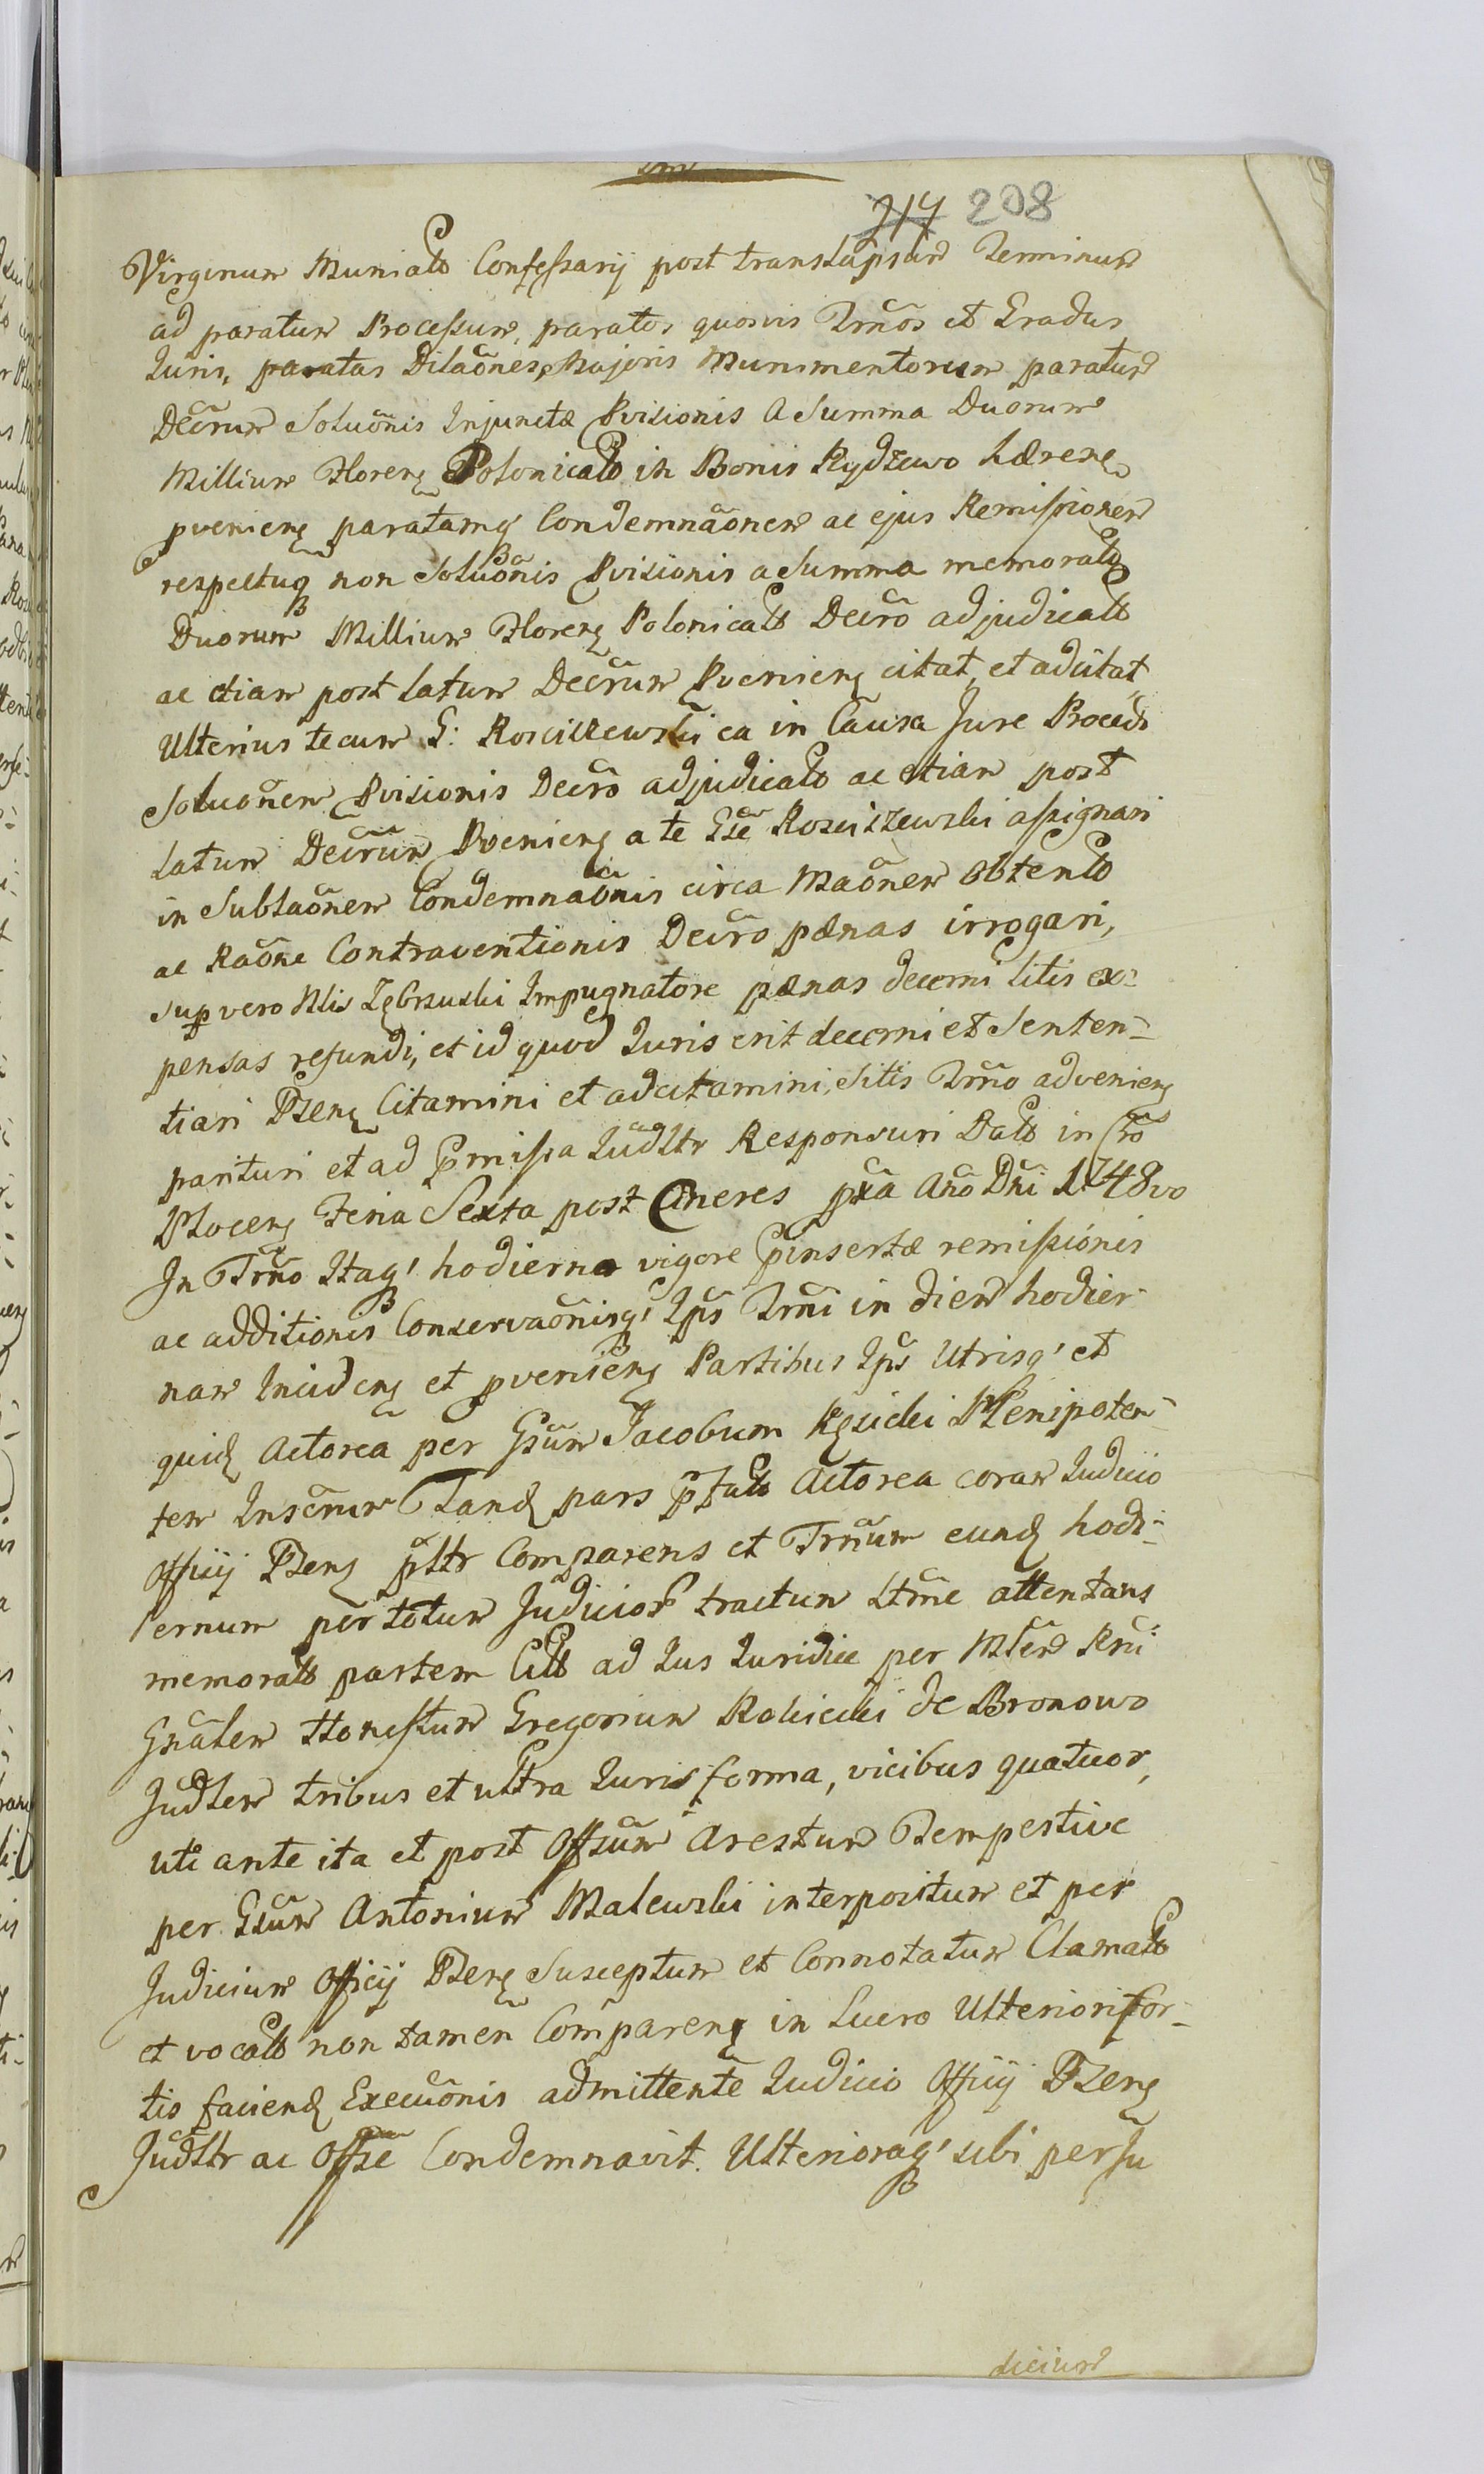 217 208
Virginum Muniatt Confessarij post translapsum Terminum
ad paratum Processum, paratos quosvis Trnos et Gradus
Juris, paratas Dilaones, Majoris Munimentorum paratum
Decrum Soluonis Injunctæ Pvisionis a Summa Duorum
Millium Floren Polonicatt in Bonis Rydzewo hæren
pvenien paratamq Condemnaonem ac ejus Remissionem
respectuq non Soluonis Pvisionis a Summa memoratt
Duorum Millium Floren Polonicatt Decro adjudicatt
ac etiam post latum Decrum Pvenien citat, et adcitat
Ulterius tecum G: Rosciszewski ea in Causa Jure Procedi
Soluonem Pvisionis Decro adjudicatt ac etiam post
latum Decrum Pvenien a te Gse Rosciszewski assignari
in Sublaonem Condemnaonis circa Maonem Obtentt
ac Raone Contraventionis Decro pænas irrogari,
sup vero Nlis Zębrzuski Impugnatore pænas decerni litis ex-
pensas refundi, et id quod Juris erit decerni et Senten-
tiari Pzen Citamini et adcitamini, Sitis Trno advenien
parituri et ad pmissa Judltr Responsuri Datt in Cro
Plocen Feria Sexta post Cineres pxa Ano Dni 1748vo
In Trno Itaq' hodierno vigore pinsertæ remissionis
ac additionis Conservaonisq' Ips Trni in diem hodier-
nam Inciden et pvenien Partibus Ips Utrisq' et
quid Actorea per Gsum Jacobum Kęsicki Plenipoten-
tem Inscrum Tand pars pfatt Actorea coram Judicio
Officij Pzen psltr Comparens et Trnum eund hodi-
ernum per totum Judicior tractum Ltme attentans
memoratt partem Citt ad Jus Juridice per Mlem Rni
Gnalem Honestum Gregorium Rokicki de Bronowo
Judlem tribus et ultra Juris forma, vicibus quatuor,
uti ante ita et post Offsum Arestum Tempestive
per Gsum Antonium Malewski interpositum et per
Judicium Officij Pzen Susceptum et Connotatum Clamatt
et vocatt non tamen Comparen in Lucro Ulteriori for-
tis faciend Execuonis admittente Judicio Officij Pzen
Judltr ac Offse Condemnavit. Ulterioraq' sibi per Ju
dicium